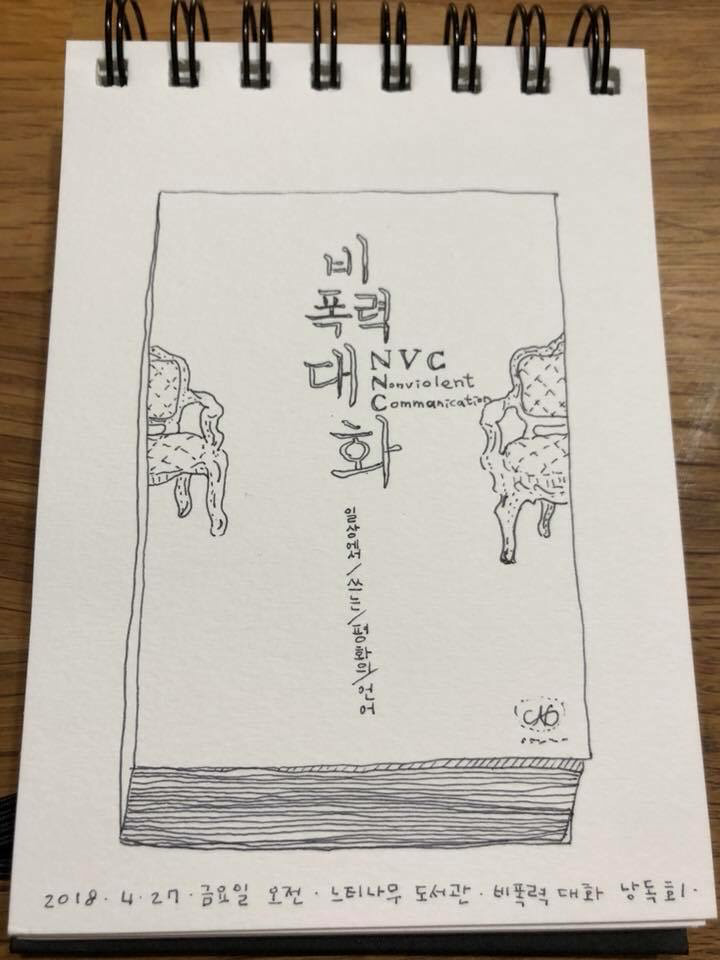 비
폭력
대
화
NVC
Nonviolent
Communication
일상에서/쓰는/평화의/언어
2018.4.27.금요일 오전.느티나무 도서관.비폭력 대화 낭독회.